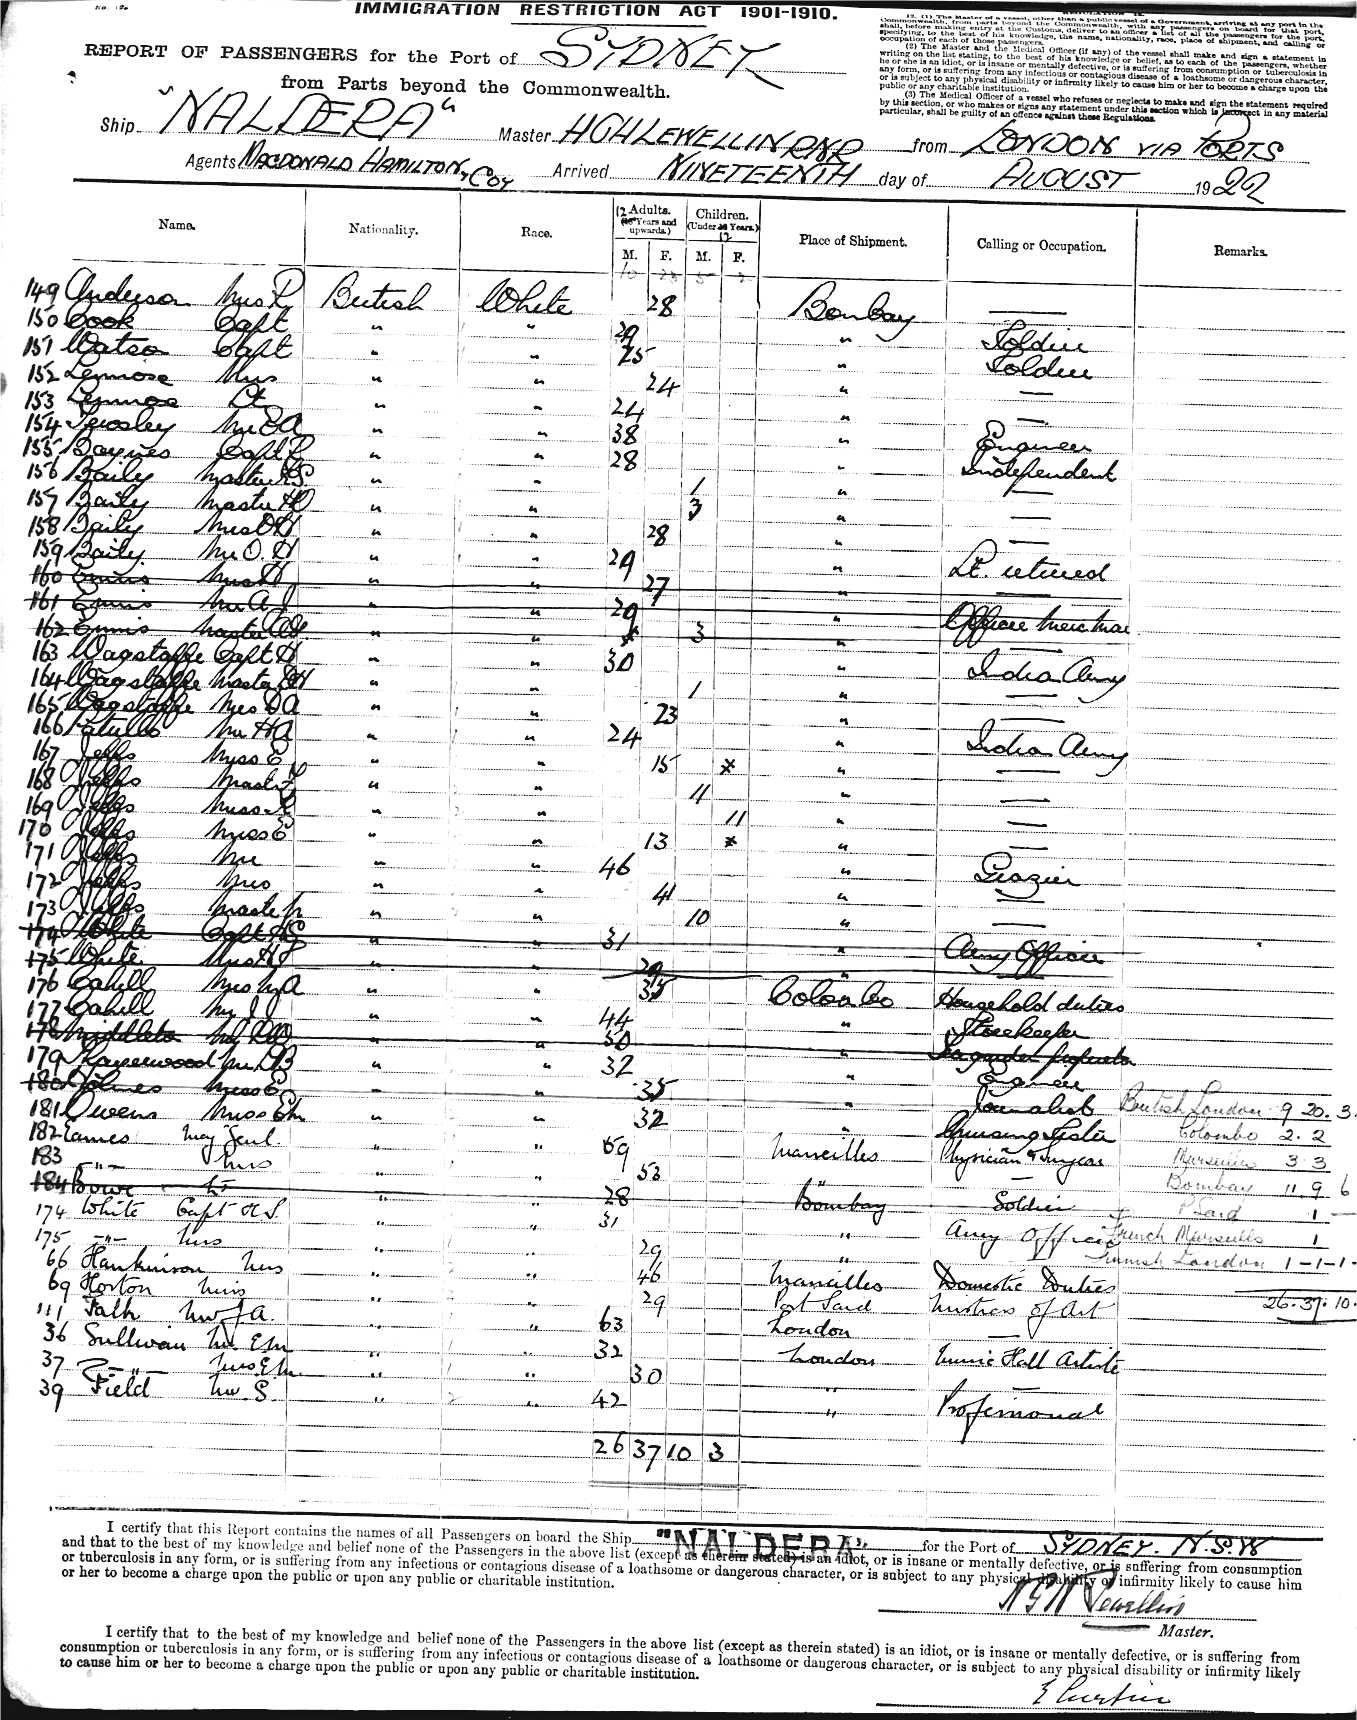 IMMIGRATION RESTRICTION ACT 1901-1910.
REPORT OF PASSENGERS for the Port of SYDNEY
from Parts beyond the Commonwealth.
12. (1) The Master of a vessel, other than a public vessel of a Government, arriving at any port in the
Commonwealth, from parts beyond the Commonwealth, with any passengers on board for that port,
shall, before making entry at the Customs, deliver to an officer a list of all the passengers for the port,
specifying, to the best of his knowledge, the name, nationality, race, place of shipment, and calling or
occupation of each of those passengers.
(2) The Master and the Medical Officer (if any) of the vessel shall make and sign a statement in
writing on the list stating, to the best of his knowledge or belief, as to each of the passengers, whether
he or she is an idiot, or is insane or mentally defective, or is suffering from consumption or tuberculosis in
any form, or is suffering from any infectious or contagious disease of a loathsome or dangerous character,
or is subject to any physical disability or infirmity likely to cause him or her to become a charge upon the
public or any charitable institution.
(3) The Medical Officer of a vessel who refuses or neglects to make and sign the statement required
by this section, or who makes or signs any statement under this section which is incorrect in any material
particular, shall be guilty of an offence against these Regulations.
Ship "NALDERA" Master HGH LEWELLIN RNR from LONDON VIA PORTS
Agents MACDONALD HAMILTON, & COY Arrived NINETEENTH day of AUGUST 1922
Name. Nationality. Race. 12 Adults. (Years and upwards.) Children. (Under Years.) 12 Place of Shipment. Calling or Occupation. Remarks.
M. F. M. F.
149 Anderson Mrs P British White 28 Bombay —
150 Cook Capt " " 29 " Soldier
151 Watson Capt " " 25 " Soldier
152 Lennose Mrs " " 24 " —
153 Lennose Lt " " 24 " —
154 Mr E A " " 38 " Engineer
155 Baynes Capt " " 28 " Independent
156 Baily Master " " 1 " —
157 Baily Master " " 3 " —
158 Baily Mrs O H " " 28 " —
159 Baily Mr O. H " " 29 " Lt. retired
160 Ennis Mrs " " 27 —
161 Ennis Mr A J " " 29 " Officer Merc Mar
162 Ennis Master " " 3 —
163 Wagstaffe Capt H " " 30 " Indian Army
164 Wagstaffe Master " " 1 " —
165 Wagstaffe Mrs D A " " 23 " —
166 Patullo Mr H A " " 24 " Indian Army
167 Jelks Miss E " " 15 x " —
168 Jelks Master " " 11 " —
169 Jelks Miss " " 11 " —
170 Jelks Miss E " " 13 x " —
171 Jelks Mr " " 46 " Grazier
172 Jelks Mrs " " 41 " —
173 Jelks Master " " 10 " —
174 White Capt H S " " 31 " Army Officer
175 White Mrs " " 29 " —
176 Cahill Mrs M A " " 35 Colombo Household duties
177 Cahill Mr J J " " 44 " Storekeeper
178 Middleton " " 50 "
179 Mr D B " " 32 " Engineer
180 Holmes Miss E " " 35 " Journalist
181 Owens Miss E M " " 32 " Nursing Sister
British London 9 20. 3.
182 Eames Maj Genl " " 69 Marseilles Physician & Surgeon
Colombo 2. 2
183 -"- Mrs " " 53 "
Marseilles 3 3
184 Bowe Lt " " 28 Bombay Soldier
Bombay 11 9 6
174 White Capt H S. " " 31 " Army Officer
P Said 1 —
175 -"- Mrs " " 29 "
French Marseilles 1
66 Hankinson Mrs " " 46 Marseilles Domestic Duties
London 1-1-1-
69 Horton Miss " " 29 Port Said Mistress of Art
26. 37. 10.
111 Falk Mr J A. " " 63 London —
36 Sullivan Mr. E M " " 32 London Music Hall Artiste
37 -"- Mrs E M. " " 30 " —
39 Field Mr S. " " 42 " Professional
26 37 10 3
I certify that this Report contains the names of all Passengers on board the Ship "NALDERA" for the Port of SYDNEY. N.S.W
and that to the best of my knowledge and belief none of the Passengers in the above list (except as therein stated) is an idiot, or is insane or mentally defective, or is suffering from consumption
or tuberculosis in any form, or is suffering from any infectious or contagious disease of a loathsome or dangerous character, or is subject to any physical disability or infirmity likely to cause him
or her to become a charge upon the public or upon any public or charitable institution.
HGH Lewellin
Master.
I certify that to the best of my knowledge and belief none of the Passengers in the above list (except as therein stated) is an idiot, or is insane or mentally defective, or is suffering from
consumption or tuberculosis in any form, or is suffering from any infectious or contagious disease of a loathsome or dangerous character, or is subject to any physical disability or infirmity likely
to cause him or her to become a charge upon the public or upon any public or charitable institution.